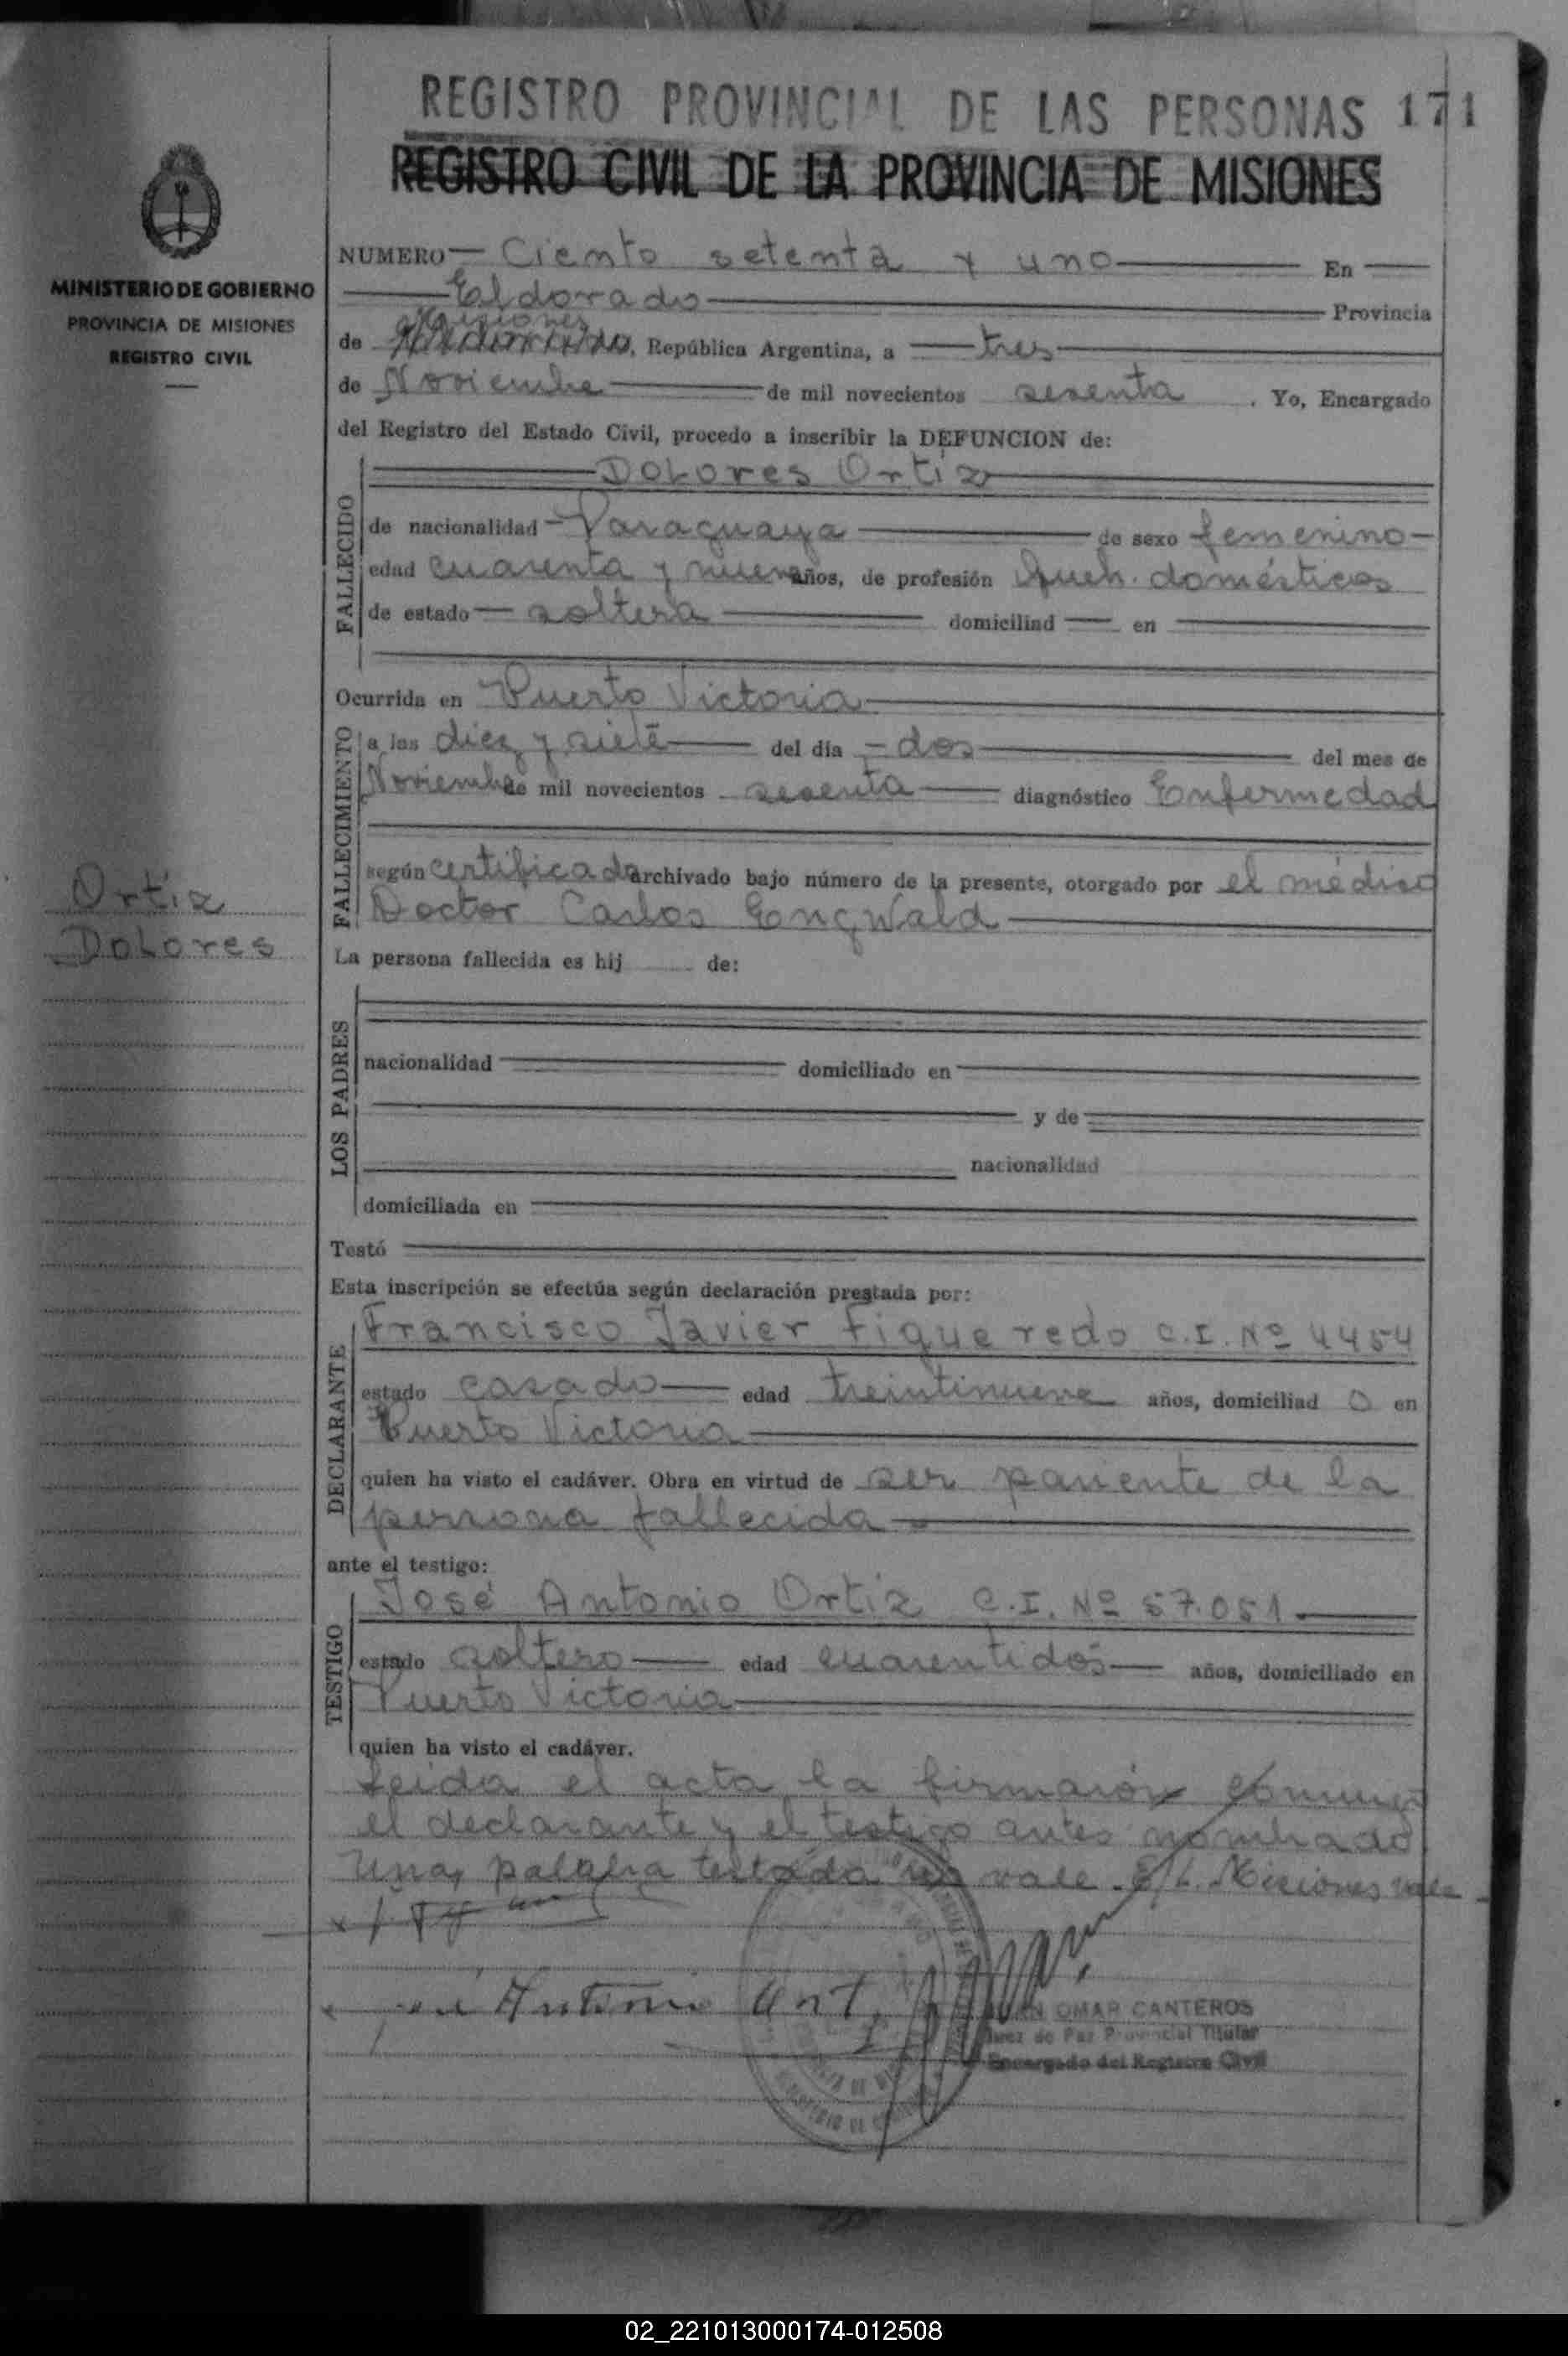 REGISTRO PROVINCIAL DE LAS PERSONAS 171
REGISTRO CIVIL DE LA PROVINCIA DE MISIONES
MINISTERIO DE GOBIERNO
PROVINCIA DE MISIONES
REGISTRO CIVIL
NUMERO Ciento setenta y uno En
Eldorado Provincia
Misiones
de , República Argentina, a tres
de Noviembre de mil novecientos sesenta . Yo, Encargado
del Registro del Estado Civil, procedo a inscribir la DEFUNCION de:
FALLECIDO
Dolores Ortiz
de nacionalidad Paraguaya de sexo femenino
edad cuarenta y nueve años, de profesión Queh. domésticos
de estado soltera domiciliad en
Ocurrida en Puerto Victoria
FALLECIMIENTO
a las diez y siete del día dos del mes de
Noviembre de mil novecientos sesenta diagnóstico Enfermedad
según certificado archivado bajo número de la presente, otorgado por el médico
Doctor Carlos Engwald
Ortiz
Dolores
La persona fallecida es hij de:
LOS PADRES
nacionalidad domiciliado en
y de
nacionalidad
domiciliada en
Testó
Esta inscripción se efectúa según declaración prestada por:
DECLARANTE
Francisco Javier Figueredo C.I. Nº 4454
estado casado edad treintinueve años, domiciliad o en
Puerto Victoria
quien ha visto el cadáver. Obra en virtud de ser pariente de la
persona fallecida
ante el testigo:
TESTIGO
José Antonio Ortiz C.I. Nº 57.051
estado soltero edad cuarentidós años, domiciliado en
Puerto Victoria
quien ha visto el cadáver.
Leida el acta la firmarón conmigo
el declarante y el testigo antes nombrado
Una palabra testada no vale. E/L. Misiones vale
José Antonio Ort
JUAN OMAR CANTEROS
Juez de Paz Provincial Titular
Encargado del Registro Civil
02_221013000174-012508